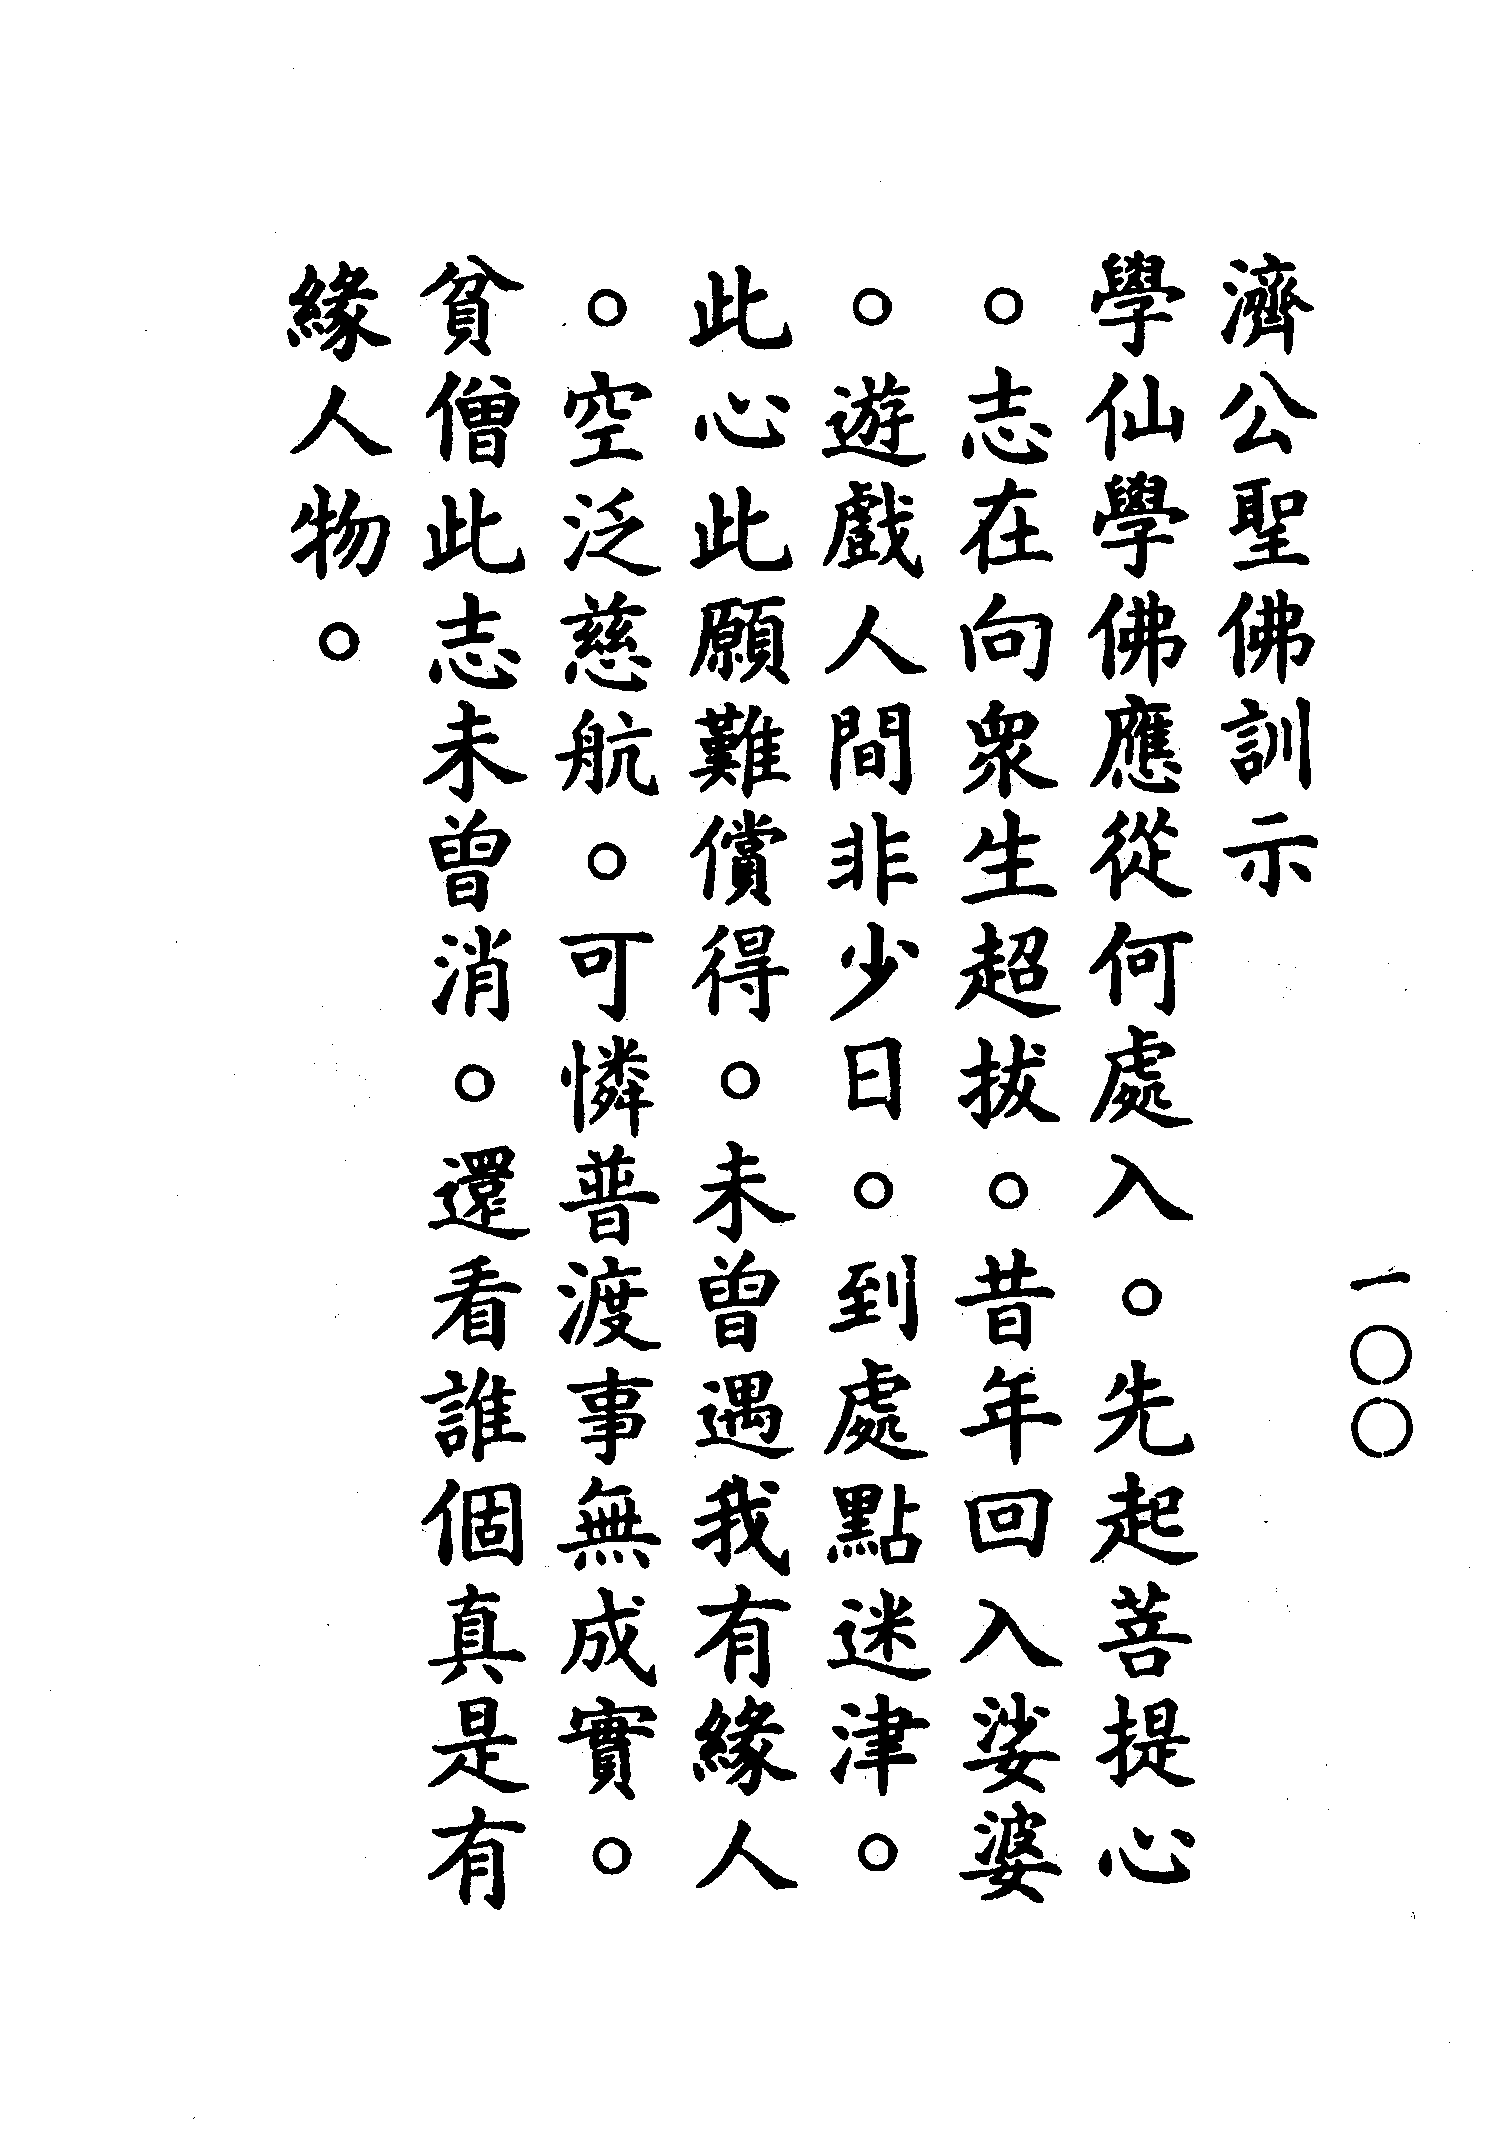 一〇〇
濟公聖佛訓示
學仙學佛應從何處入。先起菩提心
。志在向眾生超拔。昔年回入娑婆
。遊戲人間非少日。到處點迷津。
此心此願難償得。未曾遇我有緣人
。空泛慈航。可憐普渡事無成實。
貧僧此志未曾消。還看誰個真是有
緣人物。